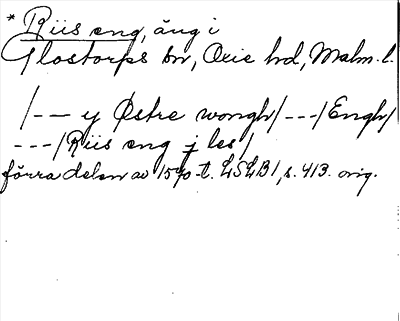 * Riis eng, äng i
Glostorps sn, Oxie hd, Malm. l.
/--- y Østre wongh/---/Engh/
---/Riis eng j les/
förra delen av 1570-t. LSLB1, s. 413. orig.